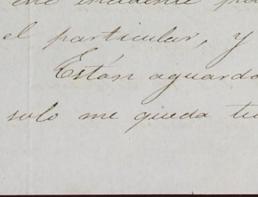 incidente
el particular, y
Están aguardo
solo me queda tu